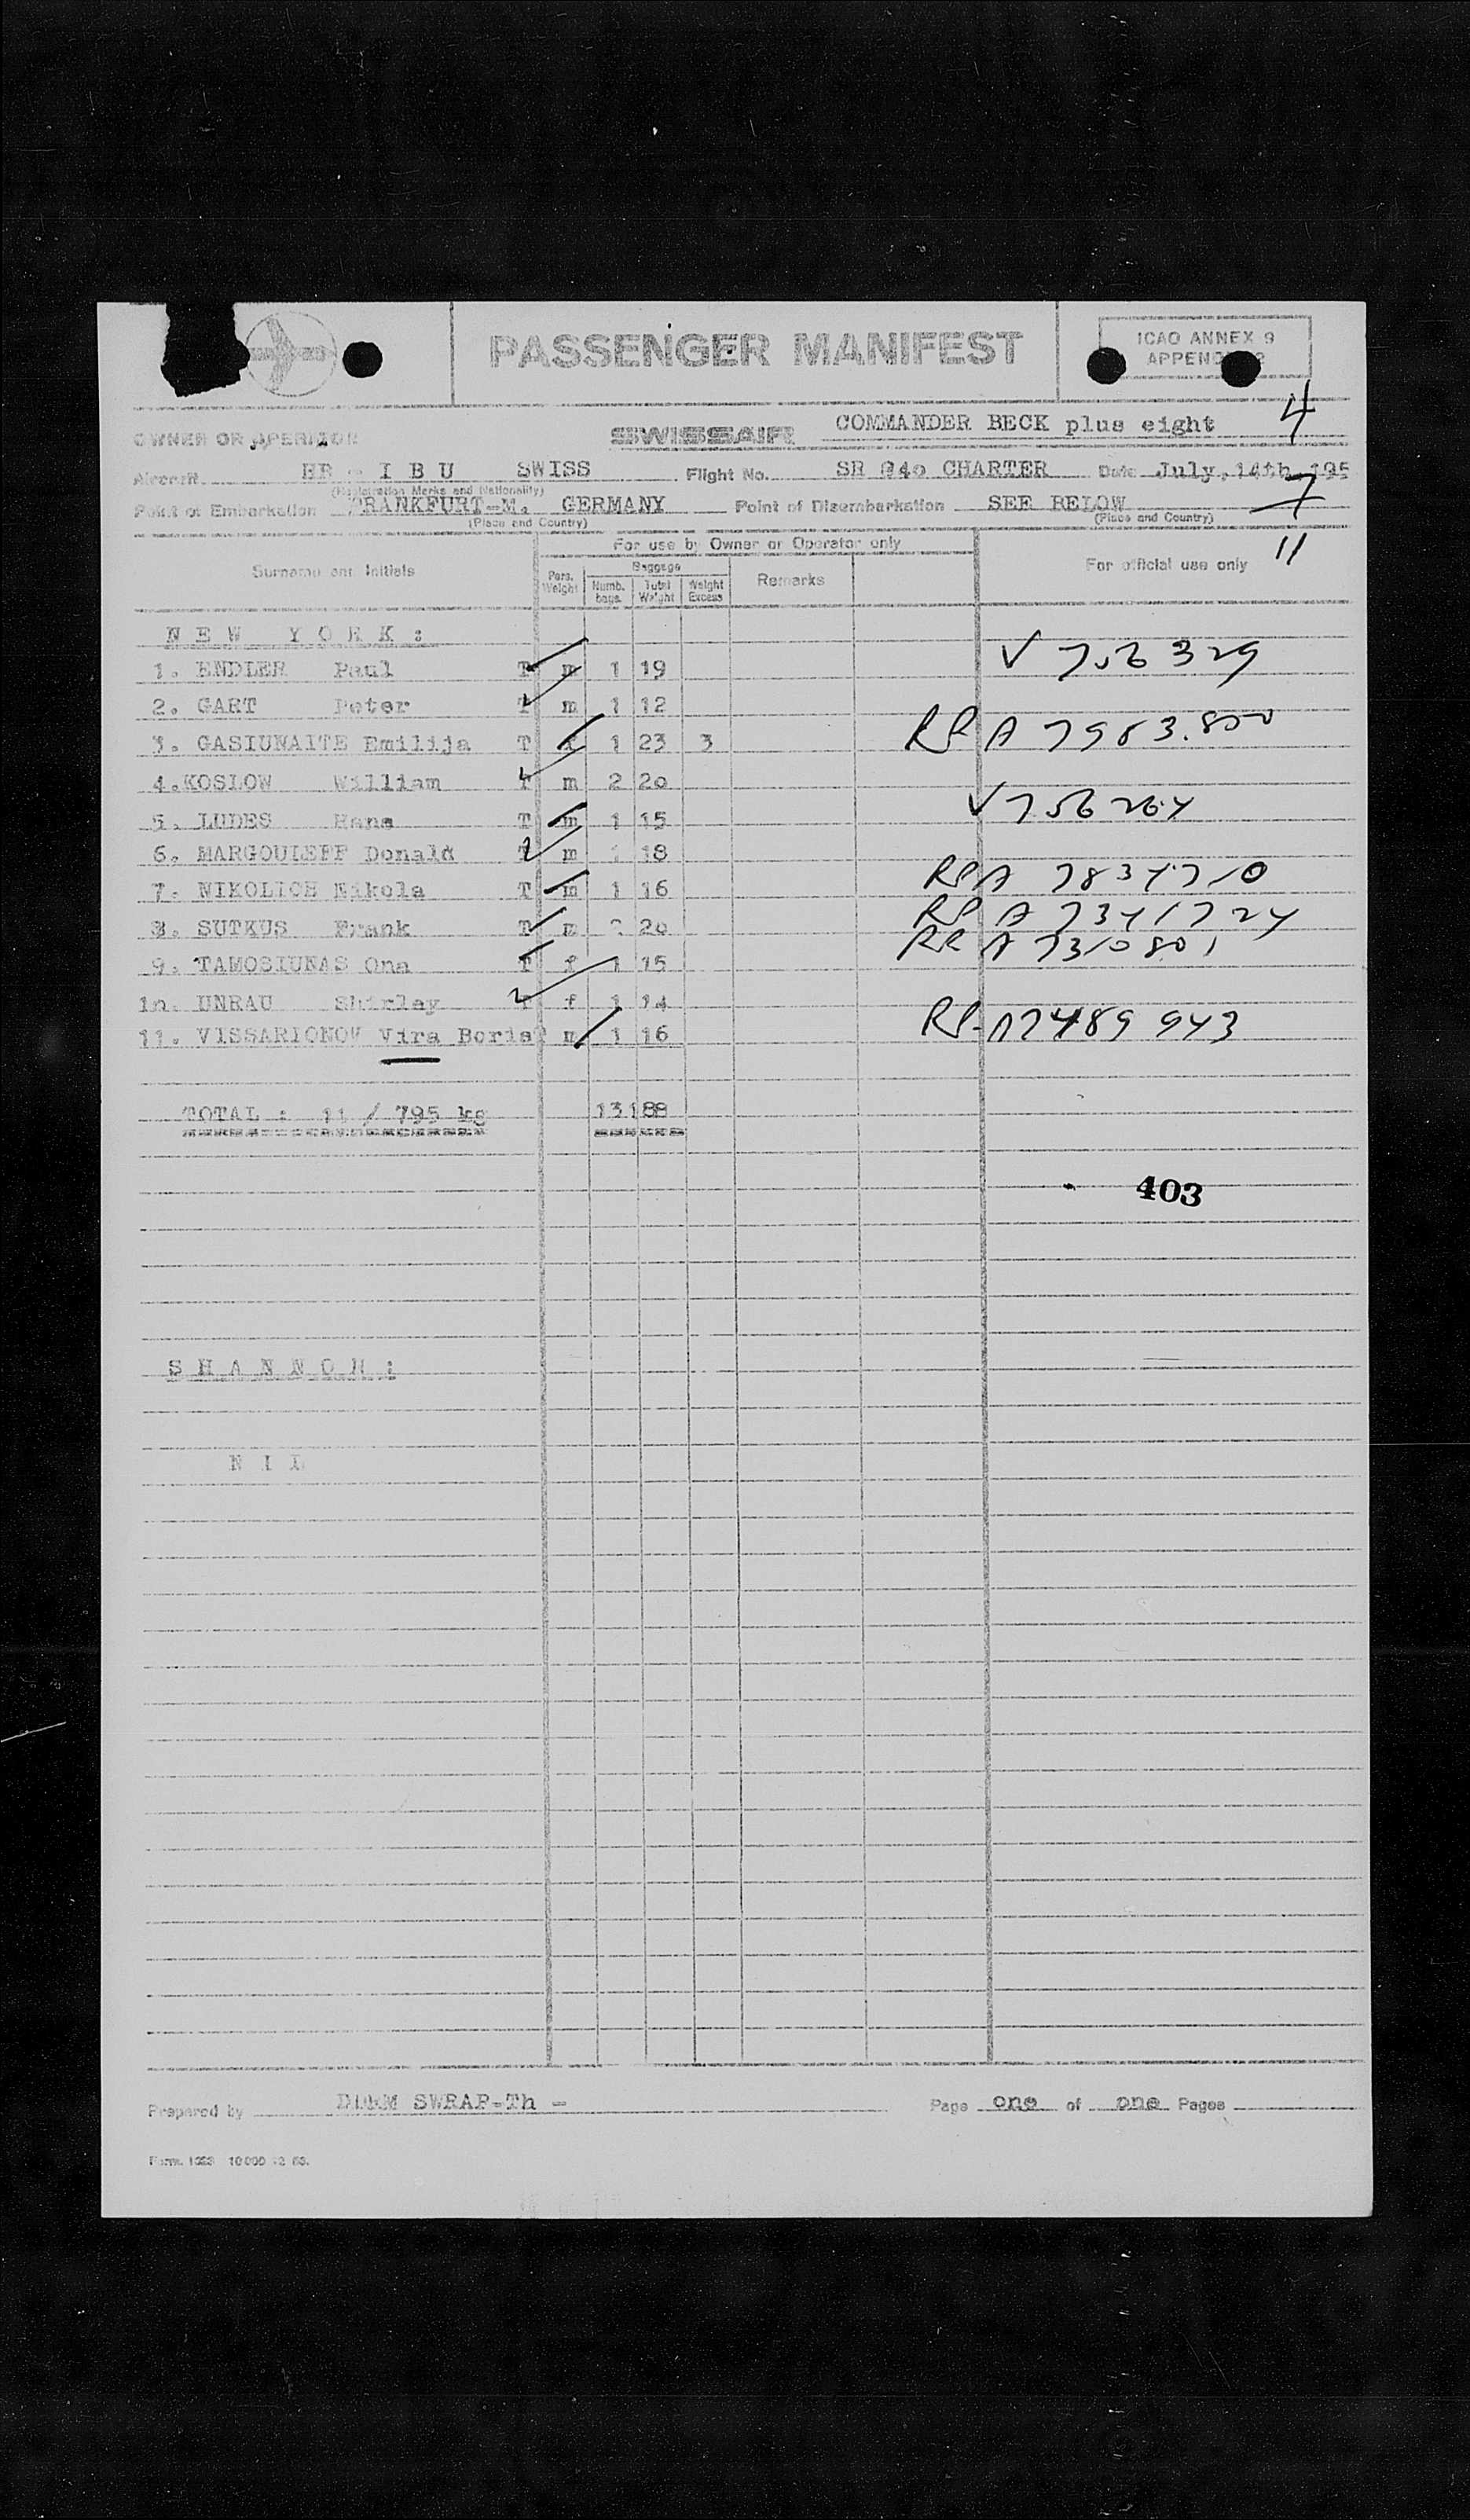 PASSENGER MANIFEST
ICAO ANNEX 9
APPENDIX 2
4
OWNER OR OPERATOR SWISSAIR COMMANDER BECK plus eight
Aircraft HB - I B U SWISS Flight No. SR 840 CHARTER Date July, 14th, 195
(Registration Marks and Nationality)
7
Point of Embarkation FRANKFURT-M. GERMANY Point of Disembarkation SEE BELOW
(Place and Country) (Place and Country)
11
For use by Owner or Operator only
Surname and Initials Pers. Weight Baggage Remarks For official use only
Numb. bags Total Weight Weight Excess
N E W Y O R K :
1. ENDLER Paul T m 1 19 V 756 329
2. GART Peter T m 1 12
3. GASIUNAITE Emilija T f 1 23 3 RP A 7983.800
4. KOSLOW William T m 2 20
5. LUDES Hans T m 1 15 V 756 264
6. MARGOULEFF Donald T m 1 18
7. NIKOLICH Nikola T m 1 16 RP A 7834710
8. SUTKUS Frank T m 2 20 RP A 7341724
9. TAMOSIUNAS Ona T f 1 15 RP A 7310801
10. UNRAU Shirley T f 1 14
11. VISSARIONOW Vira Boris T m 1 16 RP A7489 943
TOTAL : 11 / 795 kg 13 188
403
S H A N N O N :
N I L
Prepared by SWRAP-Th - Page one of one Pages
Form. 1023 10000 12 53.